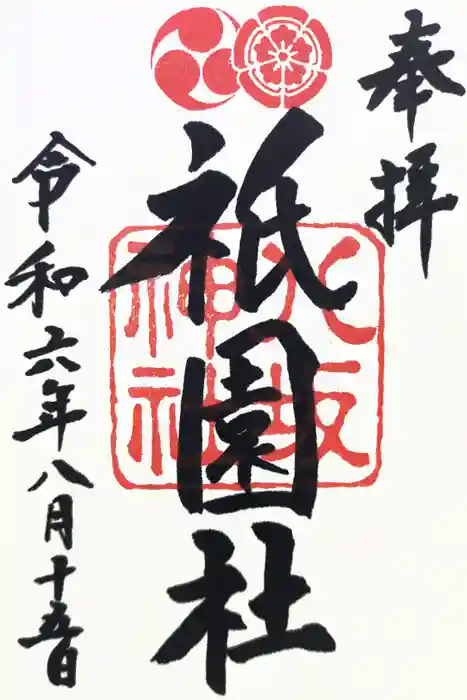 奉拝
祇園社
八坂神社
令和六年八月十五日